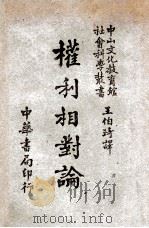 中山文化教育館
社會科學叢書
王伯琦譯
權利相對論
中華書局印行